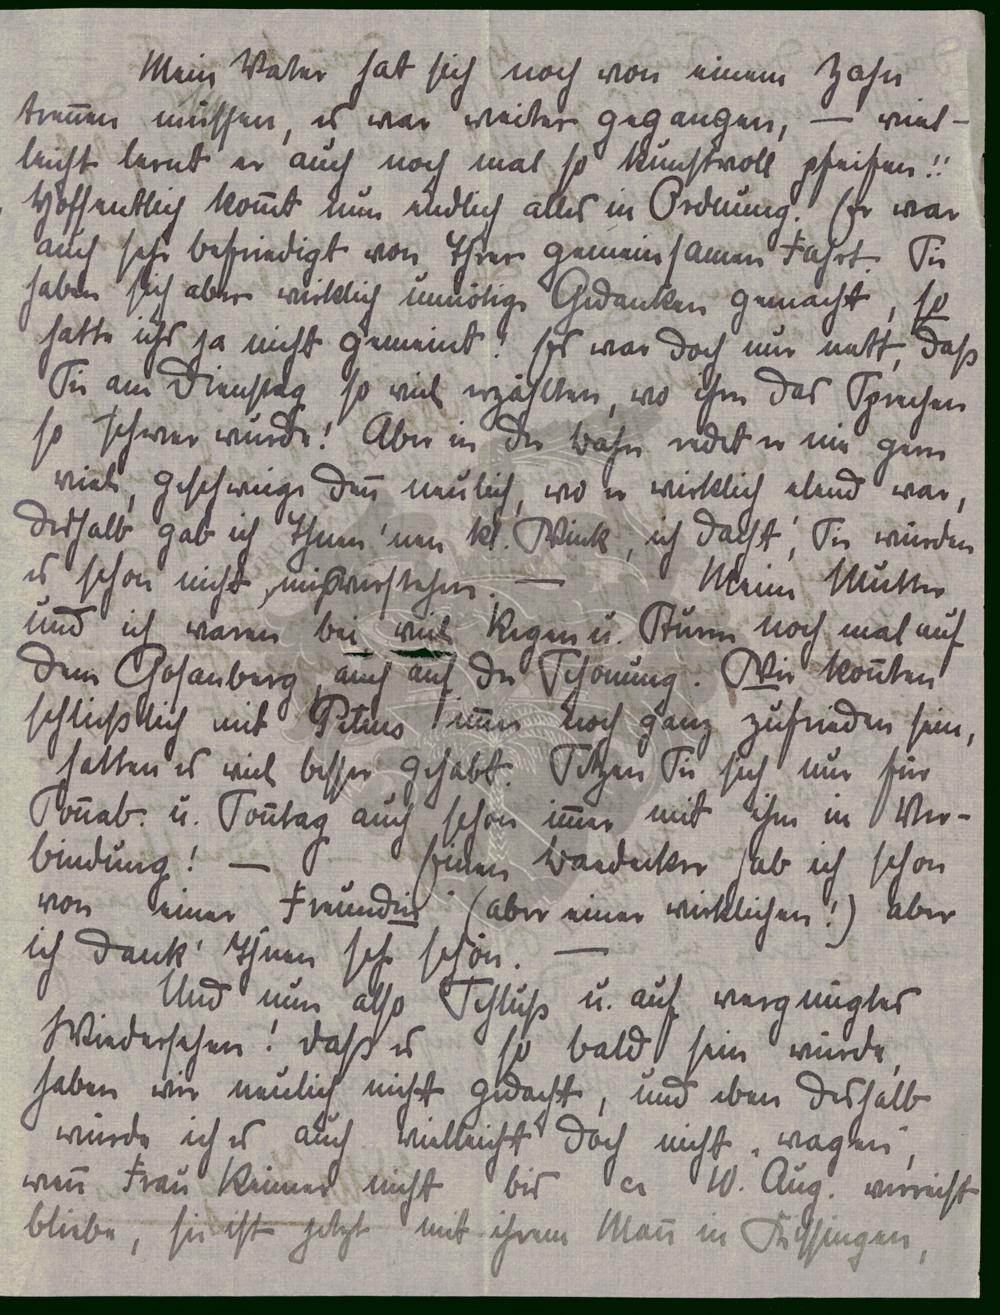 Mein Vater hat sich noch von einem Zahn
trennen müssen, es war weiter gegangen, — viel-
leicht lernt er auch noch mal so kunstvoll pfeifen!!
Hoffentlich kom̅t nun endlich alles in Ordnung. Er war
auch sehr befriedigt von Ihrer gemeinsamen Fahrt. Sie
haben sich aber wirklich unnötige Gedanken gemacht, so
hatte ichs ja nicht gemeint! Es war doch nur nett, daß
Sie am Dienstag so viel erzählten, wo ihm das Sprechen
so schwer wurde! Aber in der Bahn redet er nie gern
viel, geschweige den̅ neulich, wo er wirklich elend war,
deshalb gab ich Ihnen 'nen kl. Wink, ich dacht', Sie würden
es schon nicht „mißverstehen. — Meine Mutter
und ich waren bei viel Regen u. Sturm noch mal auf
dem auch auf der Schonung. Wir kon̅ten
schließlich mit Petrus im̅er noch ganz zufrieden sein,
hatten es viel besser gehabt. Setzen Sie sich nur für
Son̅ab. u. Son̅tag auch schon im̅er mit ihm in Ver-
bindung! — Einen Baedecker hab ich schon
von einer Freundin (aber einer wirklichen!) aber
ich dank' Ihnen sehr schön. —
Und nun also Schluß u. auf vergnügtes
Wiedersehen! Daß es so bald sein würde,
haben wir neulich nicht gedacht, und eben deshalb
würde ich es auch vielleicht doch nicht „wagen",
wen̅ Frau nicht bis ca 10. Aug. verreist
bliebe, sie ist jetzt mit ihrem Man̅ in Kissingen,